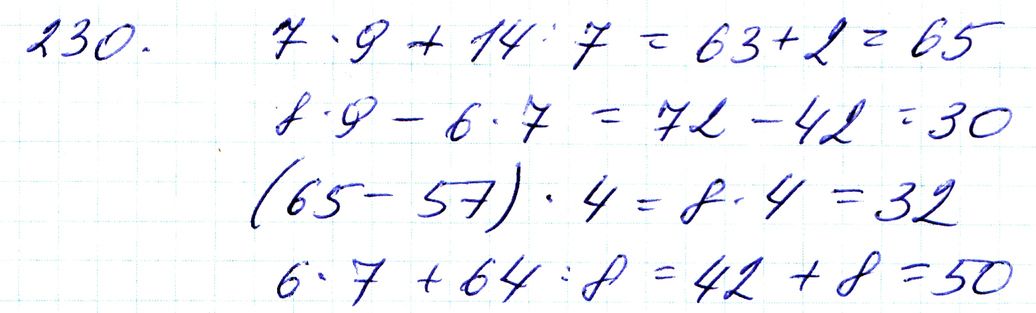 230. 7 · 9 + 14 : 7 = 63 + 2 = 65
8 · 9 - 6 · 7 = 72 - 42 = 30
(65 - 57) · 4 = 8 · 4 = 32
6 · 7 + 64 : 8 = 42 + 8 = 50